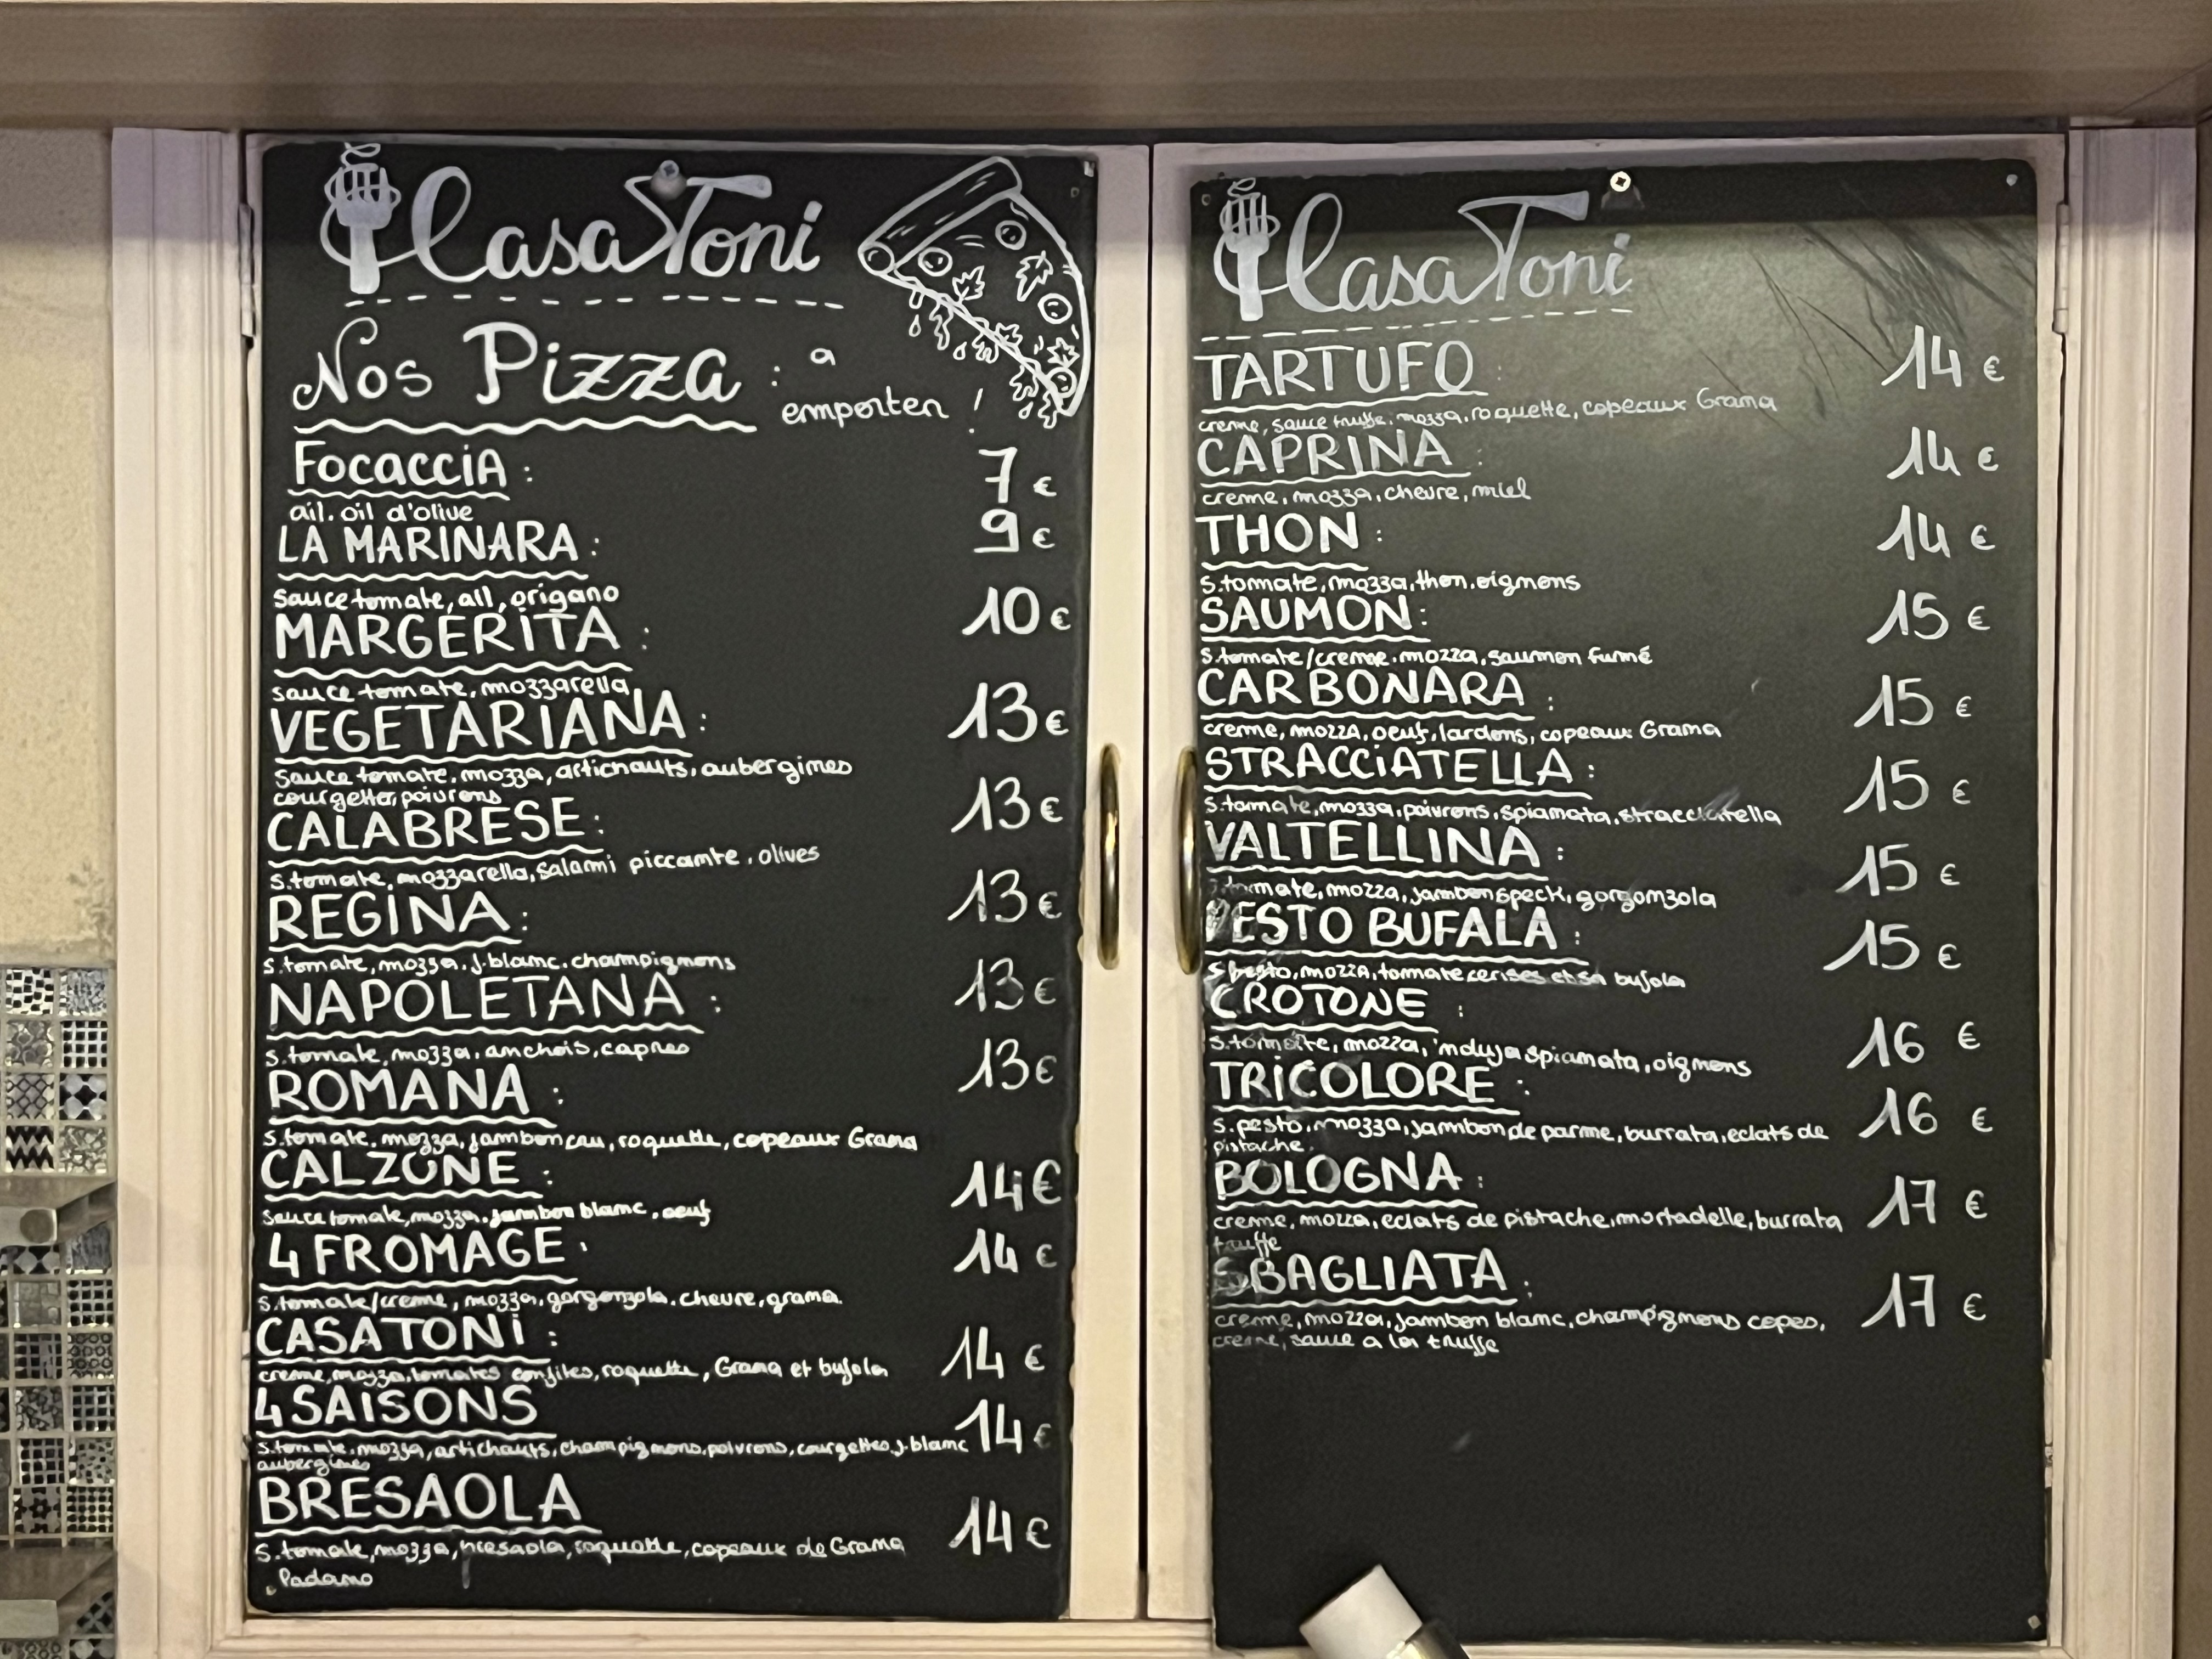 Casa Toni
Nos Pizza : a
emporter !
Focaccia : 7 €
ail. oil d'olive
LA MARINARA : 9 €
sauce tomate, ail, origano
MARGERITA : 10 €
sauce tomate, mozzarella
VEGETARIANA : 13 €
sauce tomate, mozza, artichauts, aubergines
courgette, poivrons
CALABRESE : 13 €
s.tomate, mozzarella, salami piccante, olives
REGINA : 13 €
s.tomate, mozza, j.blanc, champignons
NAPOLETANA : 13 €
s.tomate, mozza, anchois, capres
ROMANA : 13 €
s.tomate, mozza, jambon cru, roquette, copeaux Grana
CALZONE : 14 €
sauce tomate, mozza, jambon blanc, oeuf
4 FROMAGE : 14 €
s.tomate/creme, mozza, gorgonzola, chevre, grana.
CASATONI : 14 €
creme, mozza, tomates confites, roquette, Grana et bufola
4 SAISONS 14 €
s.tomate, mozza, artichauts, champignons, poivrons, courgettes, j.blanc
aubergines
BRESAOLA 14 €
s.tomate, mozza, bresaola, roquette, copeaux de Grana
Padano
Casa Toni
TARTUFO : 14 €
creme, sauce truffe, mozza, roquette, copeaux Grana
CAPRINA : 14 €
creme, mozza, chevre, miel
THON : 14 €
s.tomate, mozza, thon, oignons
SAUMON : 15 €
s.tomate/creme, mozza, saumon fumé
CARBONARA : 15 €
creme, mozza, oeuf, lardons, copeaux Grana
STRACCIATELLA : 15 €
s.tomate, mozza, poivrons, spianata, stracciatella
VALTELLINA : 15 €
s.tomate, mozza, jambon speck, gorgonzola
PESTO BUFALA : 15 €
s.pesto, mozza, tomate cerises et sa bufola
CROTONE : 16 €
s.tomate, mozza, 'nduja spianata, oignons
TRICOLORE : 16 €
s.pesto, mozza, jambon de parme, burrata, eclats de
pistache.
BOLOGNA : 17 €
creme, mozza, eclats de pistache, mortadelle, burrata
truffe
SBAGLIATA : 17 €
creme, mozza, jambon blanc, champignons cepes,
creme, sauce a la truffe